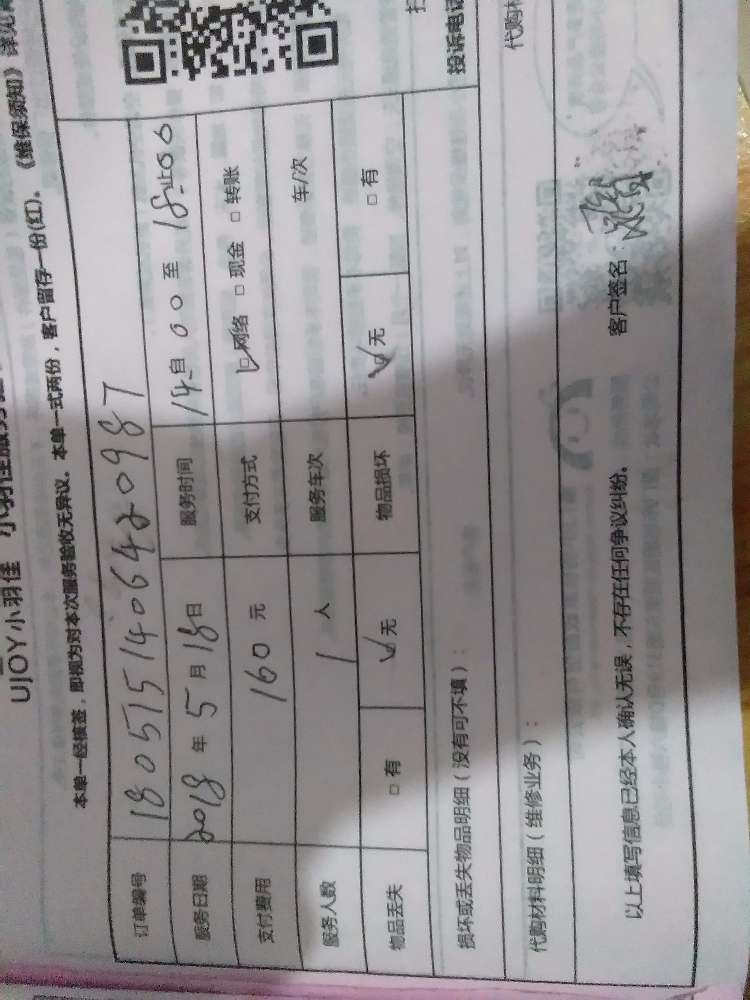 UJOY小羽佳
本单一经核签，即视为对本次服务验收无异议。本单一式两份，客户留存一份(红)。《维保须知》详见
订单编号 180515140642098７
服务日期 2018 年 5 月 18 日 服务时间 14 自 00 至 18
支付费用 160 元 支付方式 □网络 □现金 □转账
服务人数 1 人 服务车次 车/次
物品丢失 □有 □无 物品损坏 □无 □有
损坏或丢失物品明细（没有可不填）：
投诉电话
代购材料明细（维修业务）：
以上填写信息已经本人确认无误，不存在任何争议纠纷。
客户签名：